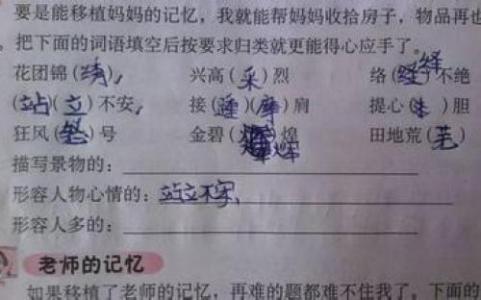 要是能移植妈妈的记忆，我就能帮妈妈收拾房子，物品再也
。把下面的词语填空后按要求归类就更能得心应手了。
花团锦（绣） 兴高（采）烈 络（绎）不绝
（站）（立）不安 接（踵）（摩）肩 提心（）胆
狂风（怒）号 金碧（辉）煌 田地荒（芜）
描写景物的：
形容人物心情的：站立不安
形容人多的：
老师的记忆
如果移植了老师的记忆，再难的题都难不住我了。下面的